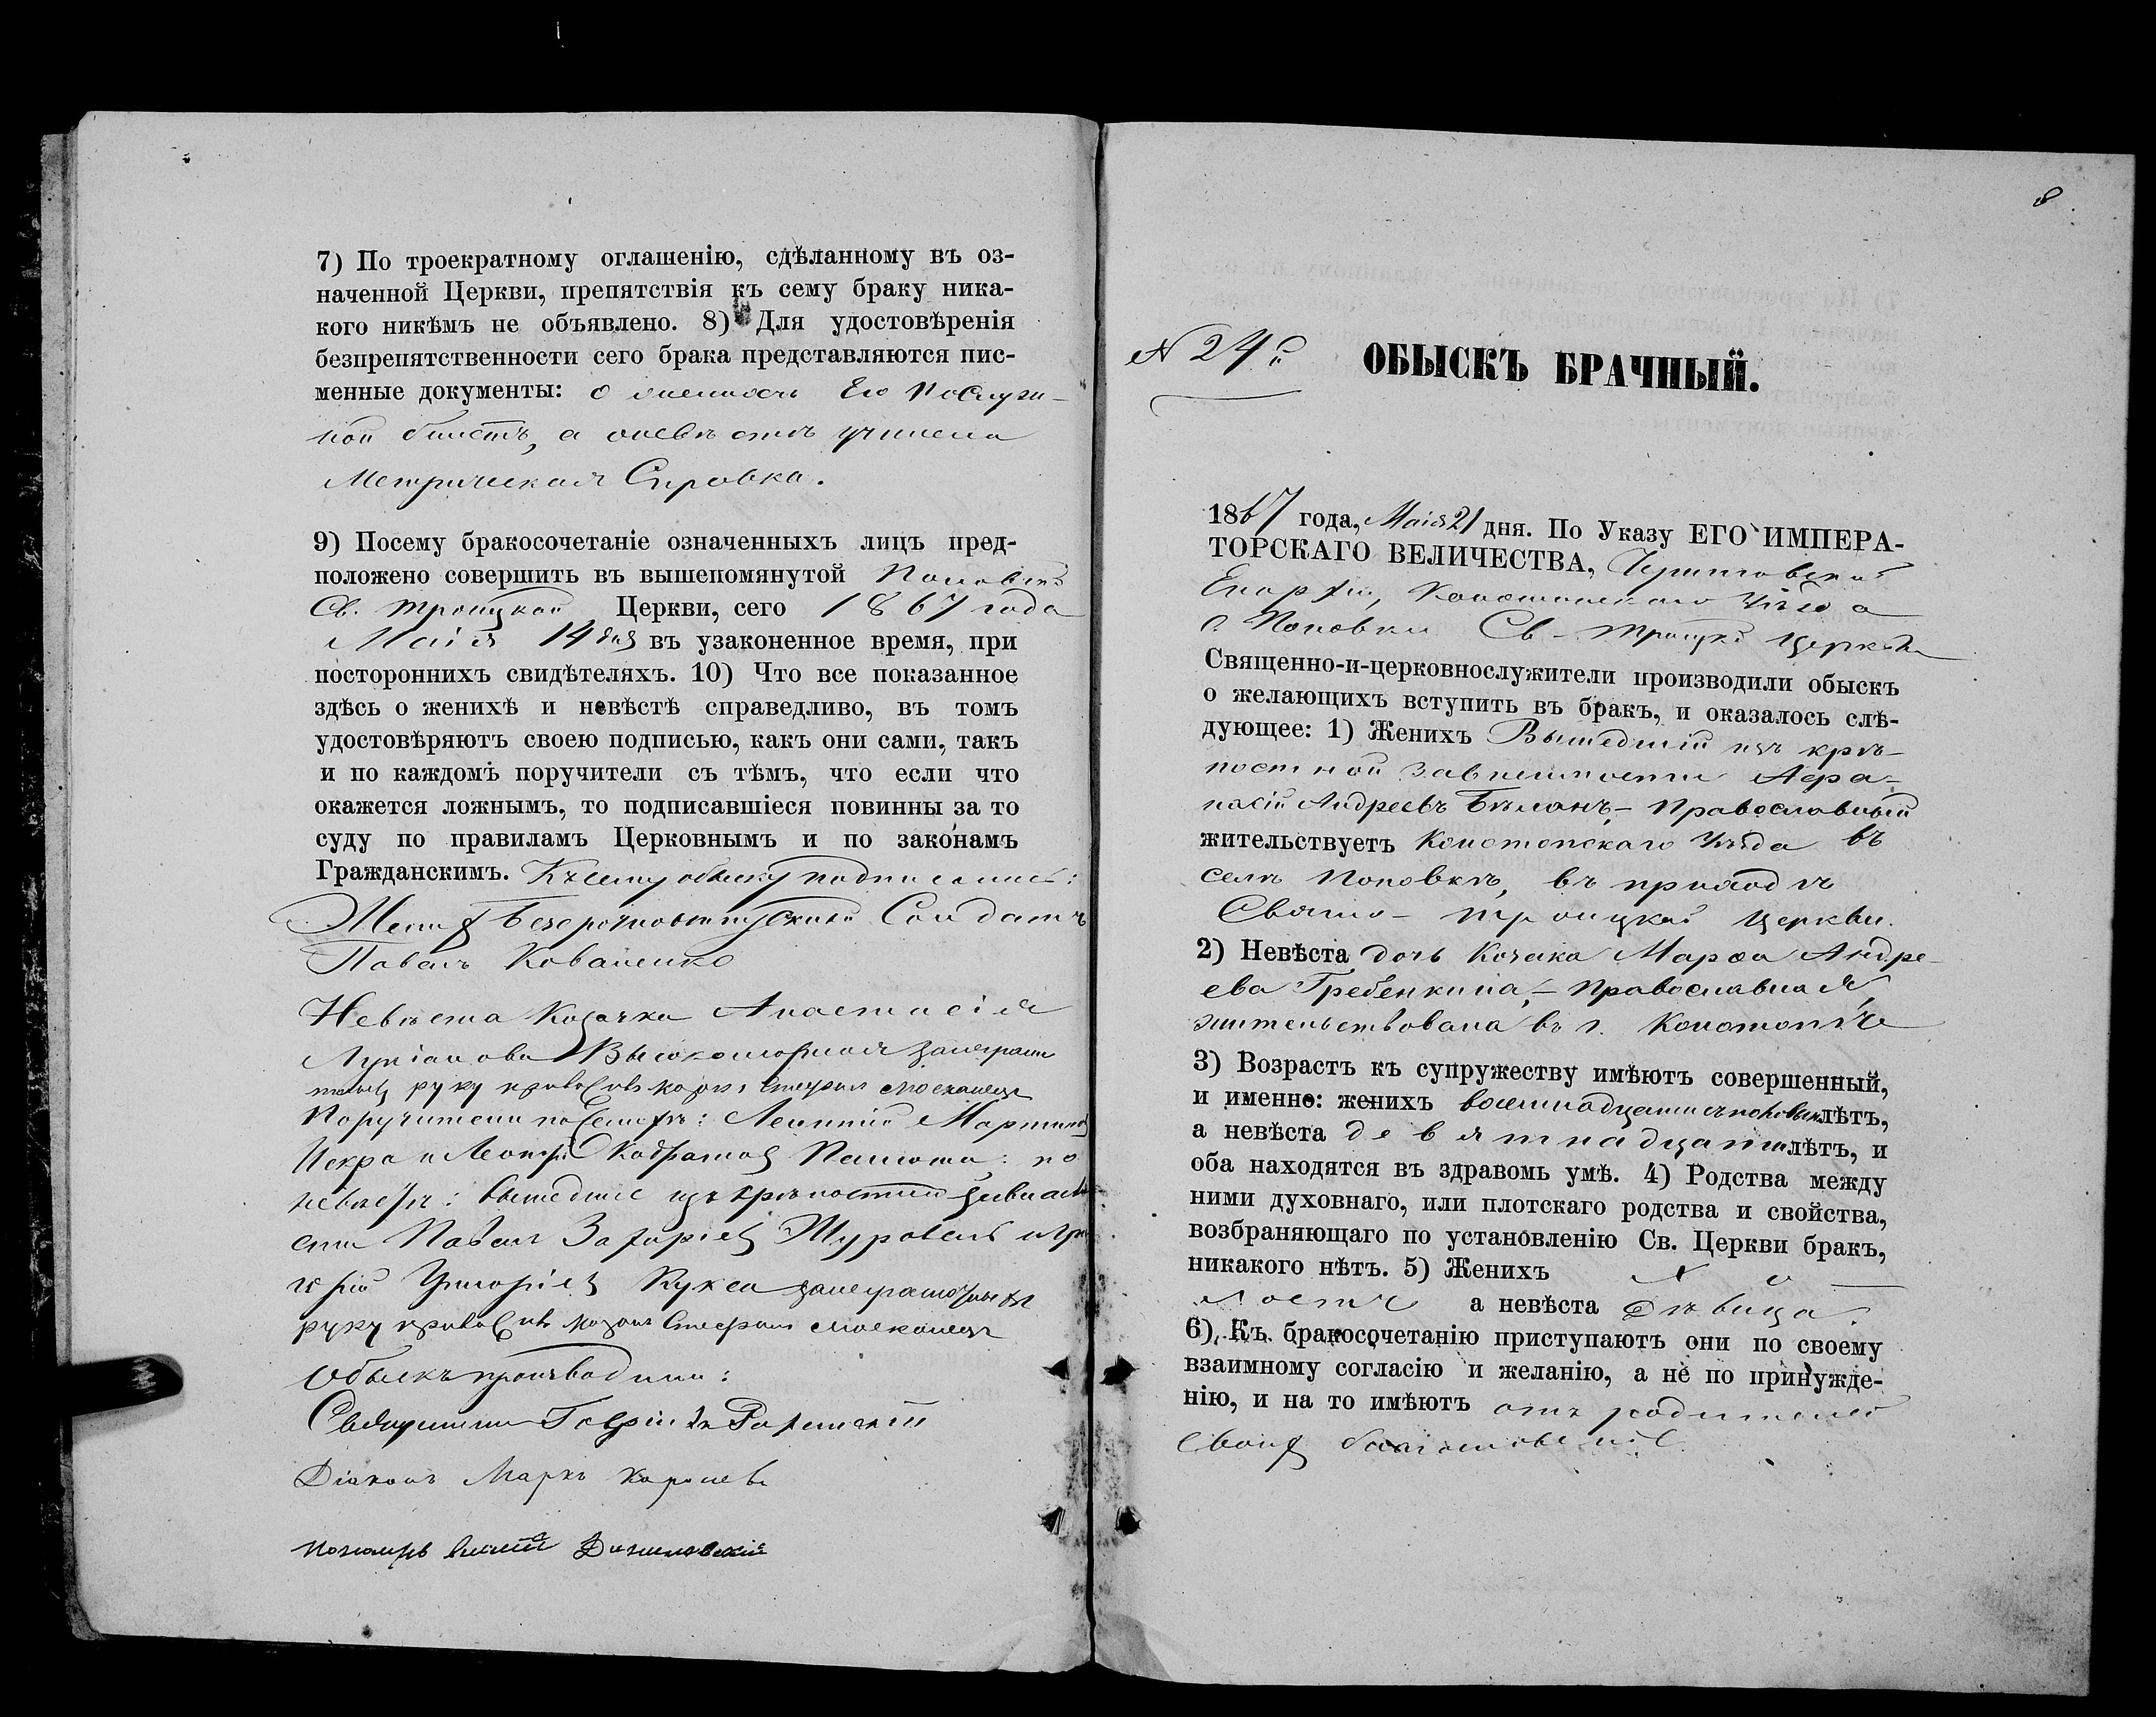 7) По троекратному оглашенію, сдѣланному въ оз-
наченной Церкви, препятствія къ сему браку ника-
кого никѣмъ не объявлено. 8) Для удостовѣренія
безпрепятственности сего брака представляются пис-
менные документы: о женихѣ Его Послуж-
ной, а о невѣстѣ учинена
Метрическая Справка.
9) Посему бракосочетаніе означенныхъ лицъ пред-
положено совершить въ вышепомянутой Поповской
Св. Троицкой Церкви, сего 1867 года
Маія 14 дня въ узаконенное время, при
постороннихъ свидѣтеляхъ. 10) Что все показанное
здѣсь о женихѣ и невѣстѣ справедливо, въ томъ
удостовѣряютъ своею подписью, какъ они сами, такъ
и по каждомъ поручители съ тѣмъ, что если что
окажется ложнымъ, то подписавшіеся повинны за то
суду по правиламъ Церковнымъ и по законамъ
Гражданскимъ. Къ сему обыску подписались:
Женихъ Безсрочноотпускной Солдатъ
Павелъ Коваленко
Невѣста Козачка Анастасія
Лукіанова
руку
Поручители по женихѣ: Леонтій Мартинов
Искра и по
невѣстѣ: вышедшіе изъ крѣпостной зависимо
сти Павелъ Захаріев Журавель и Гри
горій Григоріев Кукса
руку
Обыскъ производили:
Священникъ
Діаконъ Маркъ
Пономарь
8
N 24й
ОБЫСКЪ БРАЧНЫЙ.
1867 года, Маія 21 дня. По Указу ЕГО ИМПЕРА-
ТОРСКАГО ВЕЛИЧЕСТВА, Черниговской
Епархіи, Конотопскаго Уѣзда
с. Поповки Св-Троицкой церкви
Священно-и-церковнослужители производили обыскъ
о желающихъ вступить въ бракъ, и оказалось слѣ-
дующее: 1) Женихъ Вышедшій изъ крѣ-
постной зависимости Афа-
насій Андреевъ Бѣланъ,- Православный
жительствуетъ Конотопскаго Уѣзда въ
селѣ Поповкѣ, въ приходѣ
Свято-Троицкой церкви.
2) Невѣста дочь Козака Марѳа Андре-
ева Гребенкина,- Православная,
жительствовала въ г. Конотопѣ
3) Возрастъ къ супружеству имѣютъ совершенный,
и именно: женихъ восемнадцати съ половин. лѣтъ,
а невѣста девятнадцати лѣтъ, и
оба находятся въ здравомъ умѣ. 4) Родства между
ними духовнаго, или плотскаго родства и свойства,
возбраняющаго по установленію Св. Церкви бракъ,
никакого нѣтъ. 5) Женихъ Хо-
лостъ а невѣста дѣвица.
6) Къ бракосочетанію приступаютъ они по своему
взаимному согласію и желанію, а не по принужде-
нію, и на то имѣютъ отъ родителей
своихъ благословеніе.